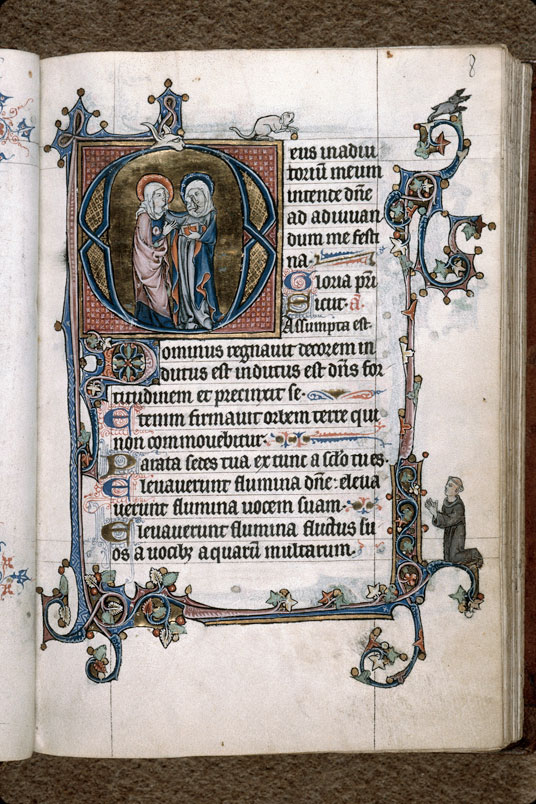 8
Deus in adiu
toriũ meum
intende dñe
ad adiuuan
dum me festi
na.
Gloria pr̄i
Sicut. a.
Assumpta est.
Dominus regnauit decorem in
dutus est indutus est dñs for
titudinem et precinxit se.
Etenim firmauit orbem terre qui
non commouebitur.
Parata sedes tua ex tunc a sc̄lo tu es.
Eleuauerunt flumina dñe: eleua
uerunt flumina uocem suam.
Eleuauerunt flumina fluctus su
os a uocibȝ aquarũ multarum.